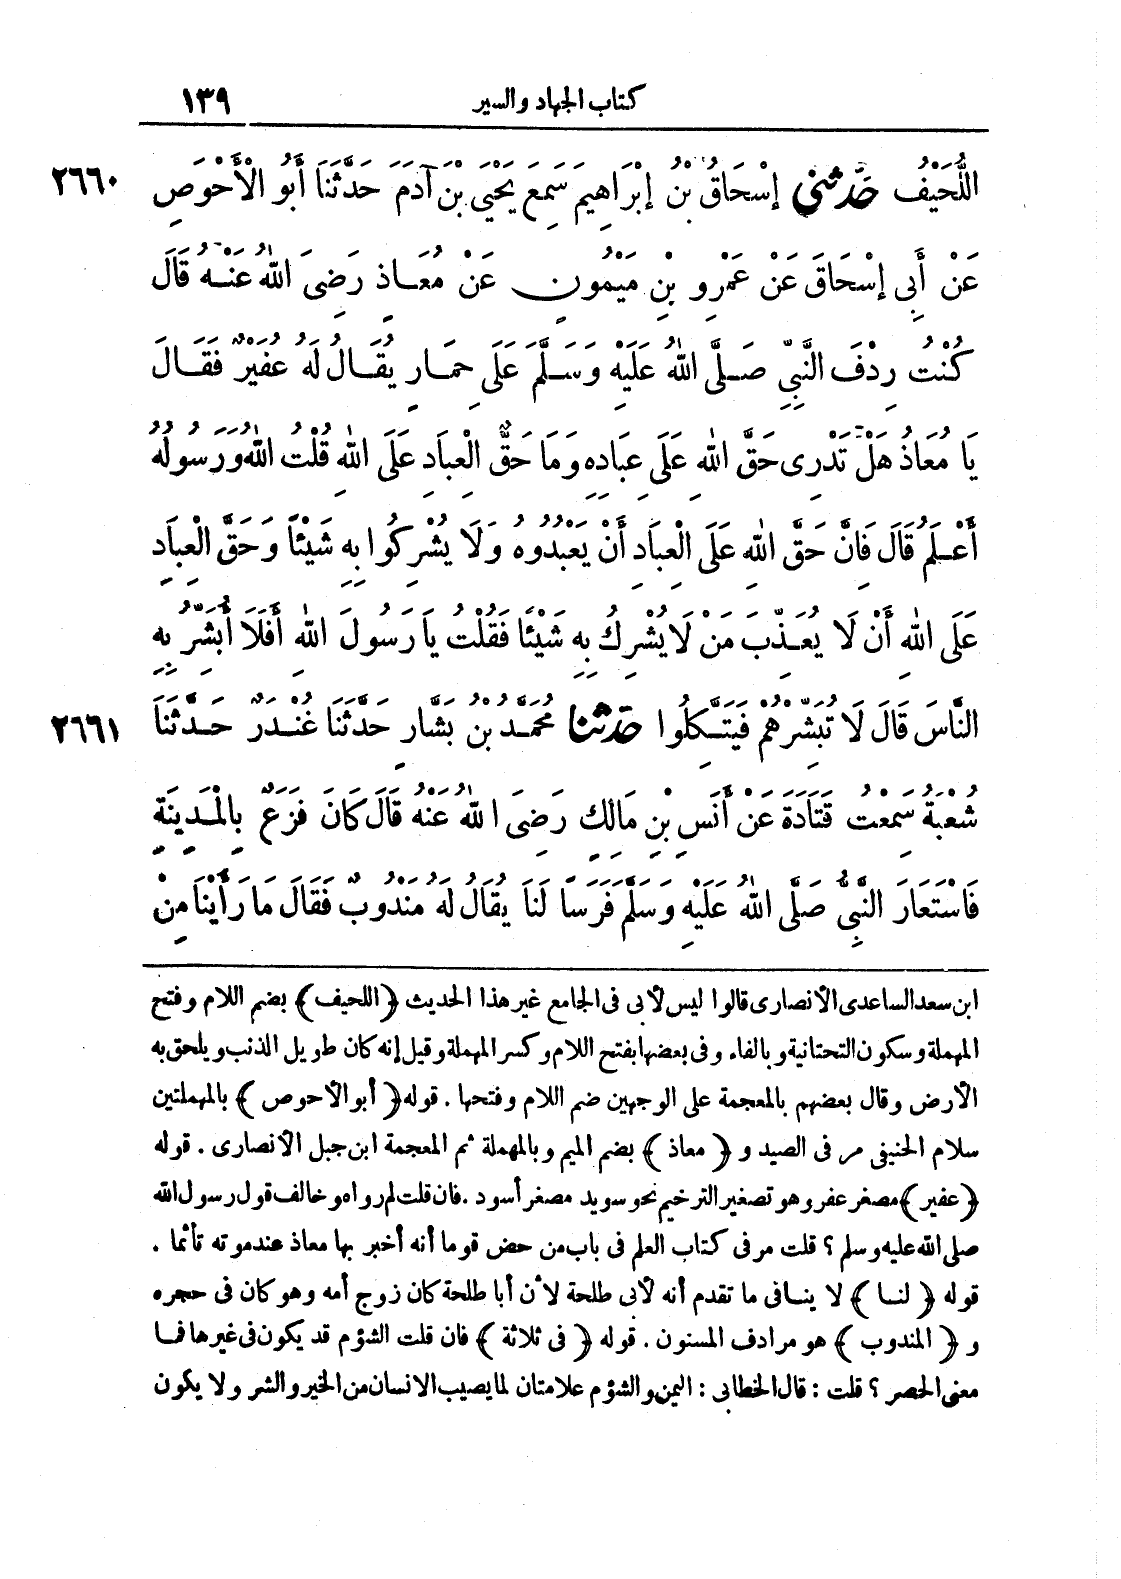 كتاب الجهاد والسير ١٣٩
اللُّحَيْفُ حَدَّثَنِي إِسْحَاقُ بْنُ إِبْرَاهِيمَ سَمِعَ يَحْيَى بْنَ آدَمَ حَدَّثَنَا أَبُو الْأَحْوَصِ ٢٦٦٠
عَنْ أَبِي إِسْحَاقَ عَنْ عَمْرِو بْنِ مَيْمُونٍ عَنْ مُعَاذٍ رَضِىَ اللهُ عَنْهُ قَالَ
كُنْتُ رِدْفَ النَّبِيِّ صَلَّى اللهُ عَلَيْهِ وَسَلَّمَ عَلَى حِمَارٍ يُقَالُ لَهُ عُفَيْرٌ فَقَالَ
يَا مُعَاذُ هَلْ تَدْرِى حَقَّ اللهِ عَلَى عِبَادِهِ وَمَا حَقُّ الْعِبَادِ عَلَى اللهِ قُلْتُ اللهُ وَرَسُولُهُ
أَعْلَمُ قَالَ فَإِنَّ حَقَّ اللهِ عَلَى الْعِبَادِ أَنْ يَعْبُدُوهُ وَلَا يُشْرِكُوا بِهِ شَيْئًا وَحَقَّ الْعِبَادِ
عَلَى اللهِ أَنْ لَا يُعَذِّبَ مَنْ لَا يُشْرِكُ بِهِ شَيْئًا فَقُلْتُ يَا رَسُولَ اللهِ أَفَلَا أُبَشِّرُ بِهِ
النَّاسَ قَالَ لَا تُبَشِّرْهُمْ فَيَتَّكِلُوا حَدَّثَنَا مُحَمَّدُ بْنُ بَشَّارٍ حَدَّثَنَا غُنْدَرٌ حَدَّثَنَا ٢٦٦١
شُعْبَةُ سَمِعْتُ قَتَادَةَ عَنْ أَنَسِ بْنِ مَالِكٍ رَضِىَ اللهُ عَنْهُ قَالَ كَانَ فَزَعٌ بِالْمَدِينَةِ
فَاسْتَعَارَ النَّبِيُّ صَلَّى اللهُ عَلَيْهِ وَسَلَّمَ فَرَسًا لَنَا يُقَالُ لَهُ مَنْدُوبٌ فَقَالَ مَا رَأَيْنَا مِنْ
ابن سعد الساعدى الأنصارى قالوا ليس لأبى فى الجامع غير هذا الحديث ﴿اللحيف﴾ بضم اللام وفتح
المهملة وسكون التحتانية وبالفاء وفى بعضها بفتح اللام وكسر المهملة وقيل إنه كان طويل الذنب ويلحق به
الأرض وقال بعضهم بالمعجمة على الوجهين ضم اللام وفتحها . قوله ﴿أبو الاحوص﴾ بالمهملتين
سلام الحنيفى مر فى الصيد و ﴿معاذ﴾ بضم الميم وبالمهملة ثم المعجمة ابن جبل الأنصارى . قوله
﴿عفير﴾ مصغر عفر وهو تصغير الترخيم نحو سويد مصغر أسود . فان قلت لم رواه وخالف قول رسول الله
صلى الله عليه وسلم ؟ قلت مر فى كتاب العلم فى باب من خص قوما أنه أخبر بها معاذ عند موته تأثما .
قوله ﴿لنا﴾ لا ينافى ما تقدم أنه لأبى طلحة لأن أبا طلحة كان زوج أمه وهو كان فى حجره
و ﴿المندوب﴾ هو مرادف المسنون . قوله ﴿فى ثلاثة﴾ فان قلت الشؤم قد يكون فى غيرها فما
معنى الحصر ؟ قلت : قال الخطابى : اليمن والشؤم علامتان لما يصيب الانسان من الخير والشر ولا يكون